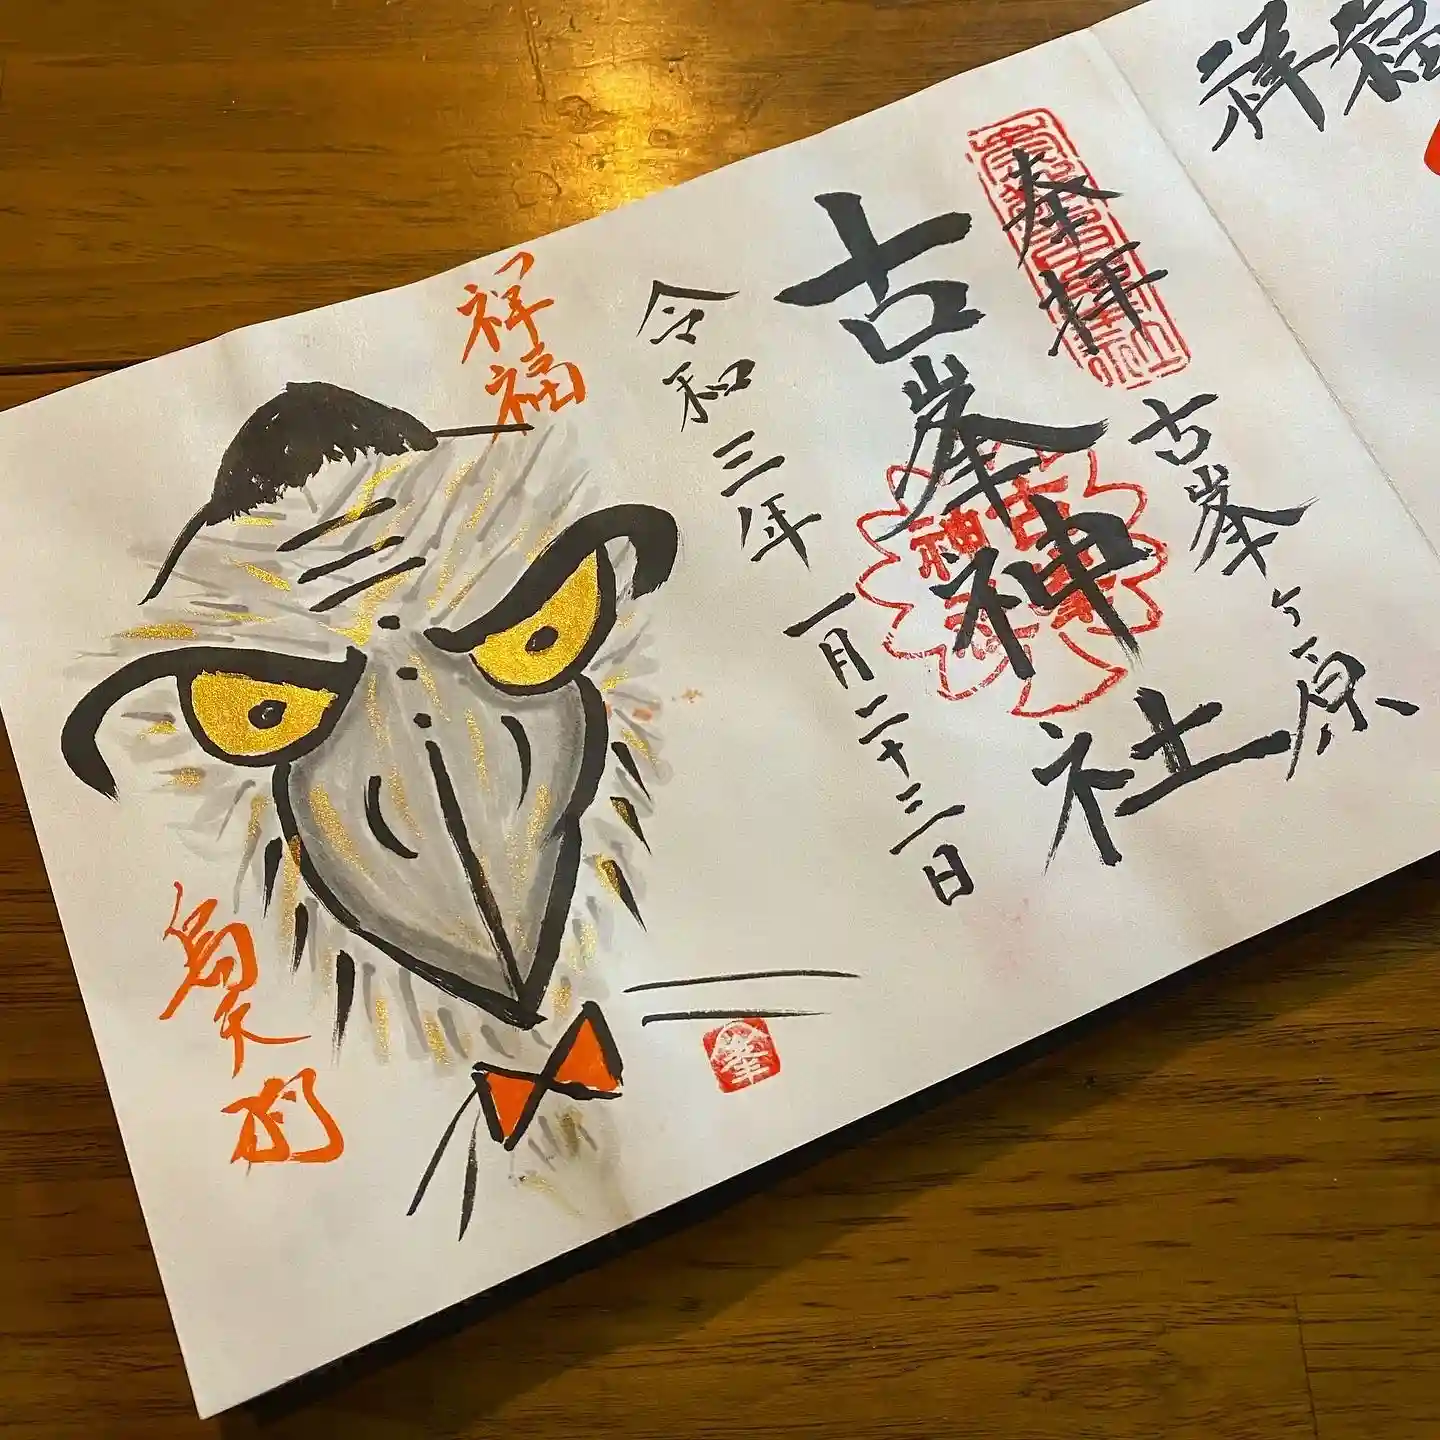 祥福
奉拝
古峯ヶ原
古峯神社
令和三年一月二十三日
祥福
烏天狗
古峯神社
峯